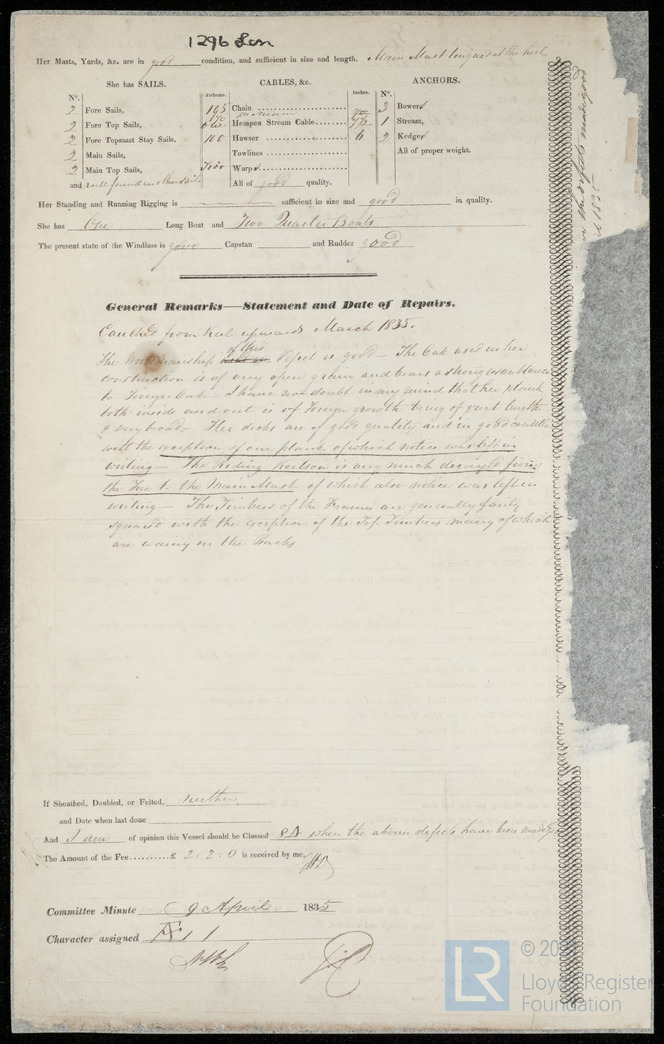 1296 Lon
Her Masts, Yards, &c. are in good condition, and sufficient in size and length. Main Mast tongued at the heel
She has SAILS. CABLES, &c. ANCHORS.
No. Fathoms. Inches. No.
2 Fore Sails, 195 Chain 3 Bowers
2 Fore Top Sails, Hempen Stream Cable 1 Stream,
2 Fore Topmast Stay Sails, 100 Hawser 6 2 Kedges
2 Main Sails, Towlines All of proper weight.
2 Main Top Sails, Two Warps
and well found in other sails All of good quality.
Her Standing and Running Rigging is sufficient in size and good in quality.
She has One Long Boat and Two Quarter Boats
The present state of the Windlass is good Capstan and Rudder good
General Remarks—Statement and Date of Repairs.
Caulked from Keel upwards March 1835.
of this
The Workmanship Vessel is good – The Oak used in her
construction is of very open grain and bears a strong resemblance
to Foreign Oak – I have no doubt in my mind that her Plank
both inside and out is of Foreign growth being of great length
& very broad – Her decks are of good quality and in good condition
with the exception of one plank of which notice was left in
writing – The Riding Keelson is very much decayed from
the Fore to the Main Mast of which also notice was left in
writing – The Timbers of the Frames are generally fairly
squared with the exception of the Top Timbers many of which
are waney on the Backs
If Sheathed, Doubled, or Felted, neither
and Date when last done
And I am of opinion this Vessel should be Classed when the above defects have been made good
The Amount of the Fee £ 2 : 2 : 0 is received by me,
Committee Minute 9 April 1835
Character assigned Æ 1
LR
© 20
Lloyd's Register
Foundation